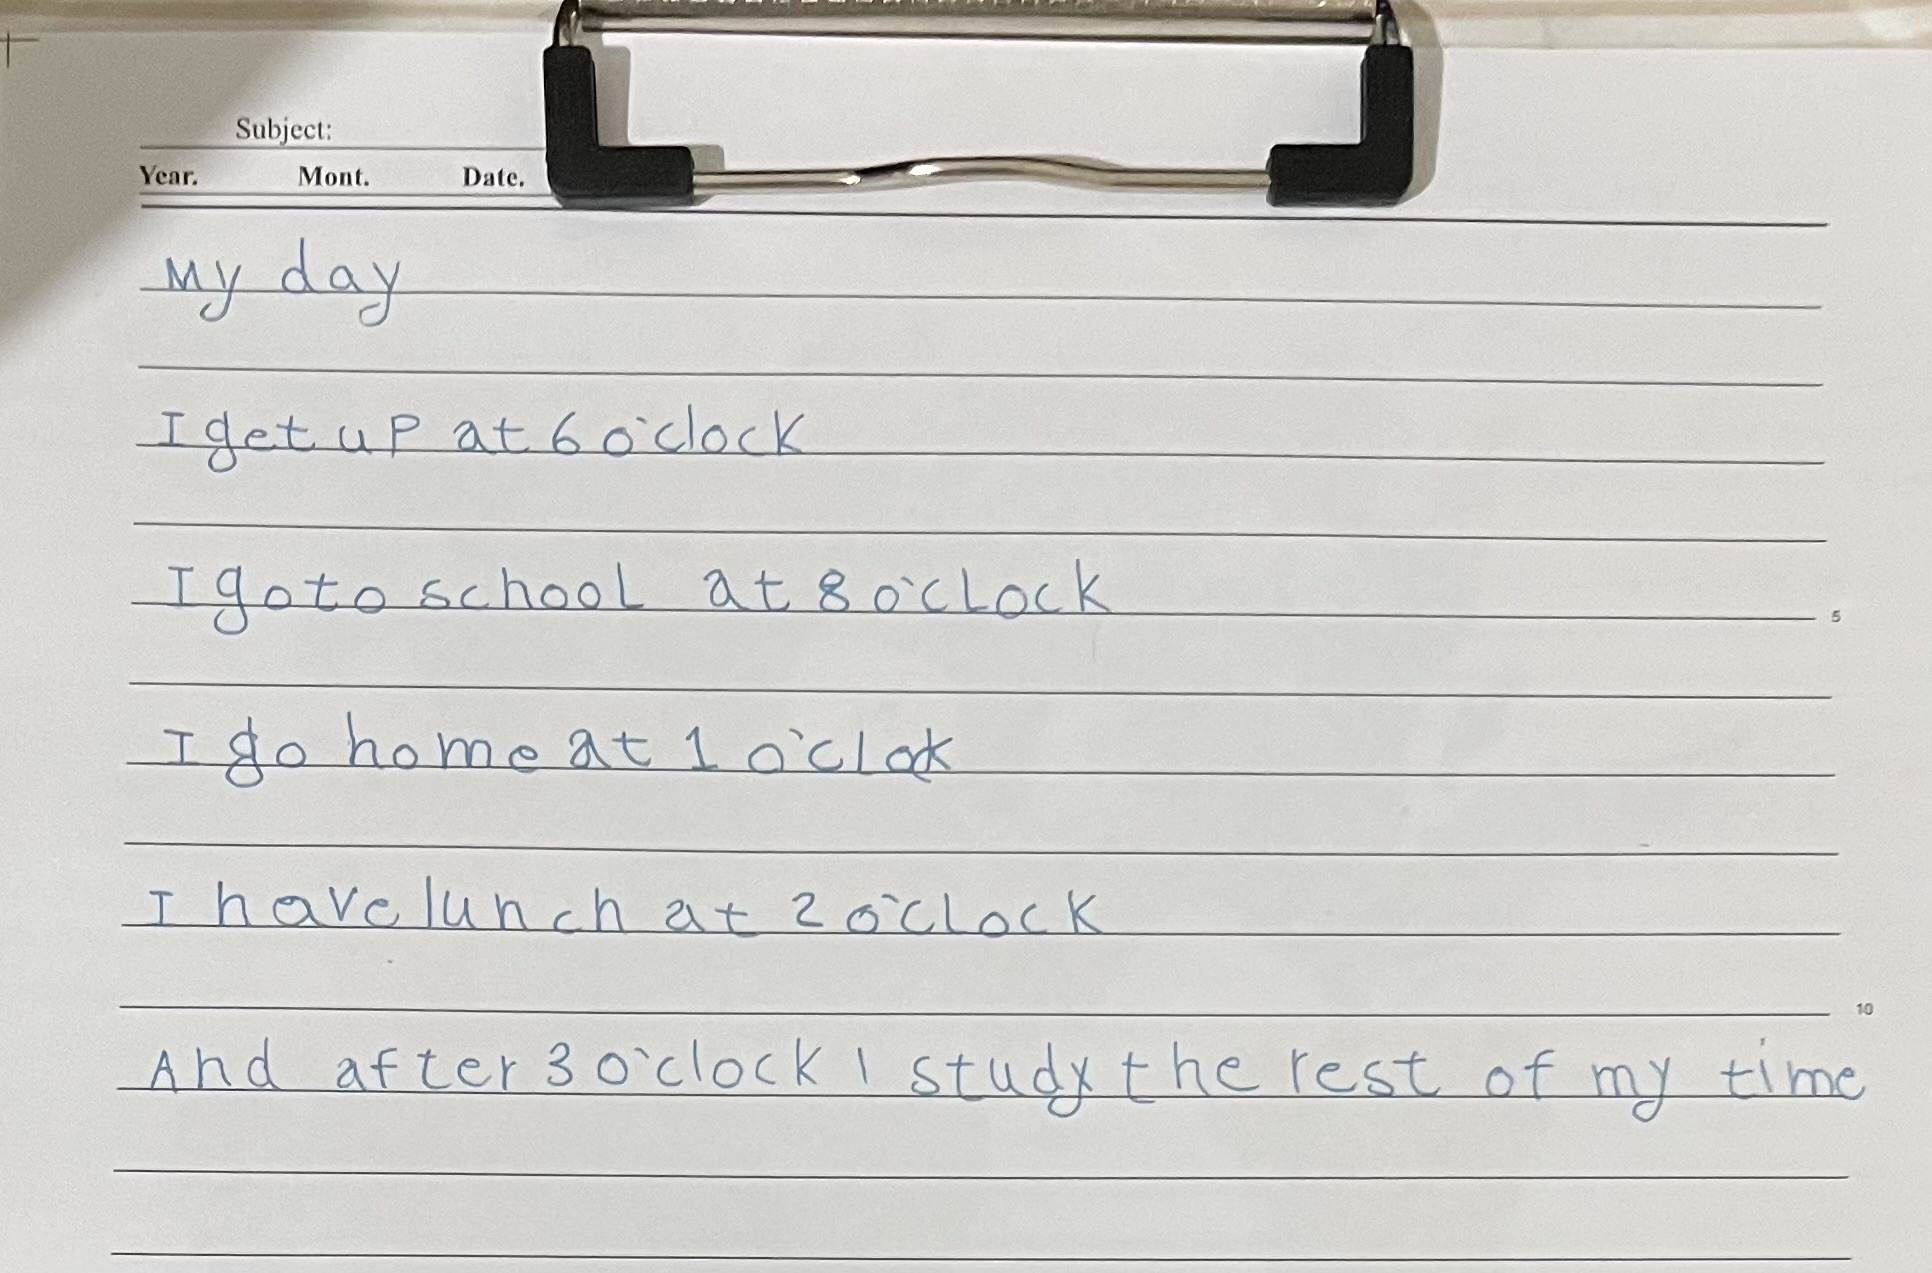 Subject:
Year. Mont. Date.
My day
I get up at 6 o'clock
I go to school at 8 o'clock
5
I go home at 1 o'clok
I have lunch at 2 o'clock
10
And after 3 o'clock I study the rest of my time